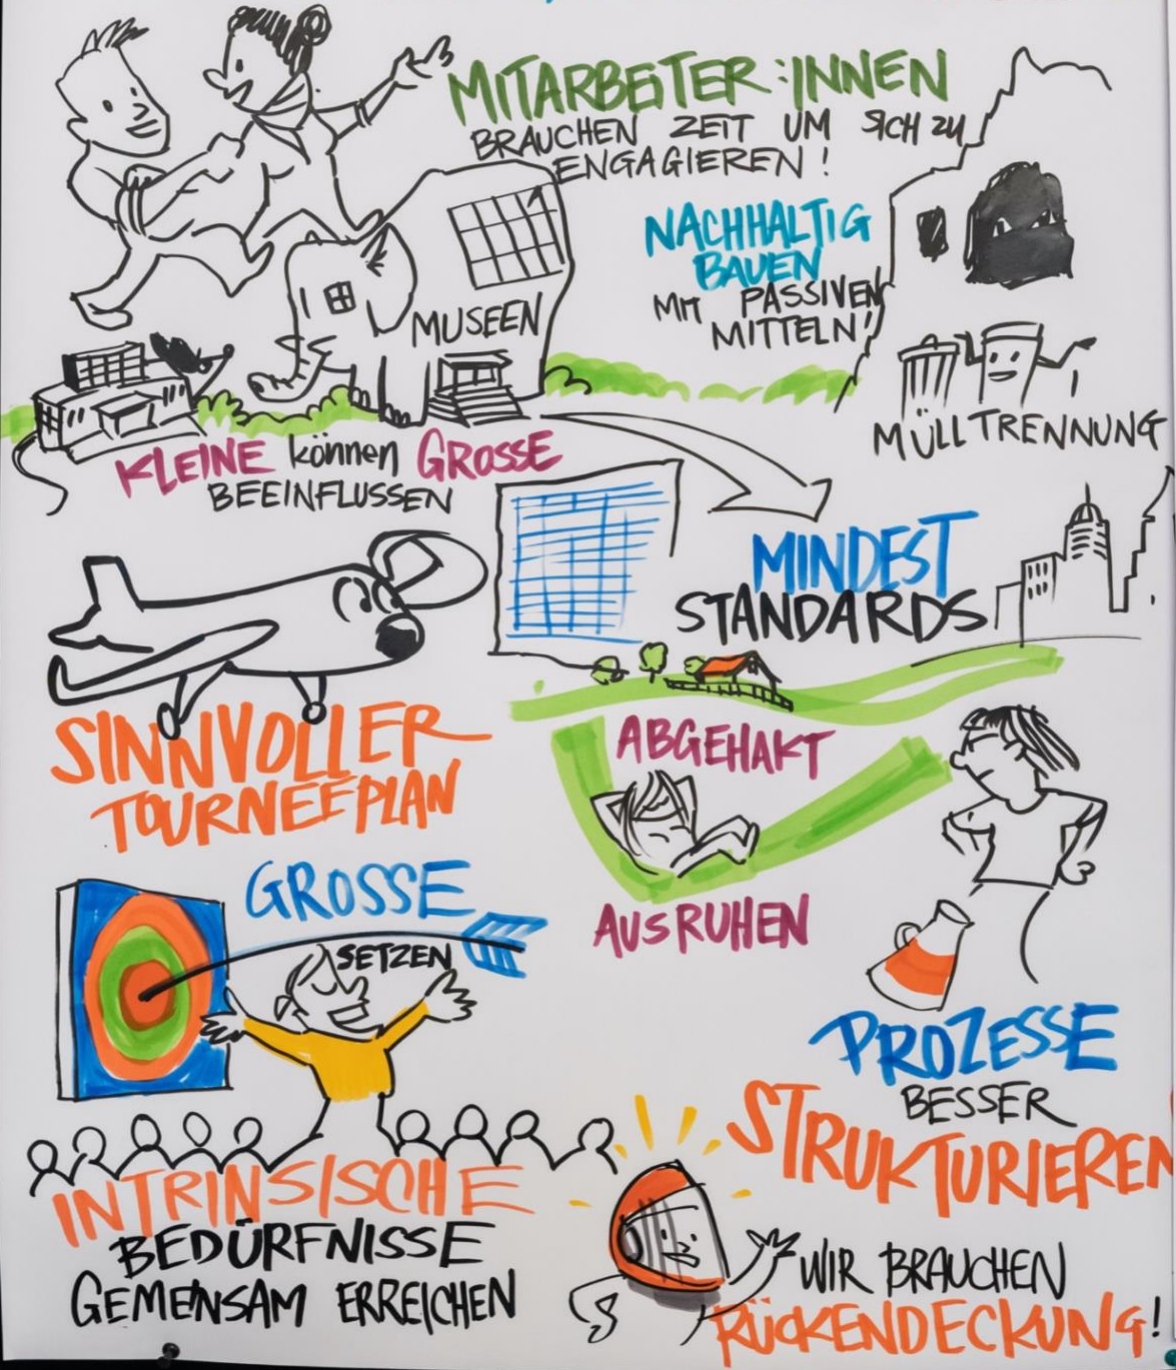 MITARBEITER:INNEN
BRAUCHEN ZEIT UM SICH ZU
ENGAGIEREN!
NACHHALTIG
BAUEN
MIT PASSIVEN
MITTELN!
MUSEEN
MÜLLTRENNUNG
KLEINE können GROSSE
BEEINFLUSSEN
MINDEST
STANDARDS
SINNVOLLER
TOURNEEPLAN
ABGEHAKT
AUSRUHEN
GROSSE
SETZEN
PROZESSE
BESSER
STRUKTURIEREN
INTRINSISCHE
BEDÜRFNISSE
GEMEINSAM ERREICHEN
WIR BRAUCHEN
RÜCKENDECKUNG!